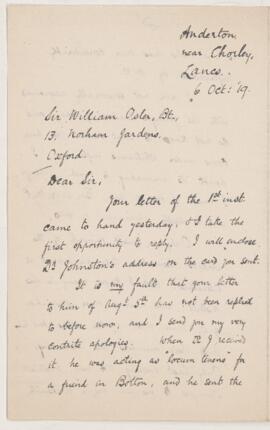 Anderton
near Chorley,
Lancs.
6 Oct: '19.
Sir William Osler, Bt.,
13. Norham Gardens.
Oxford.
Dear Sir,
Your letter of the 1st inst.
came to hand yesterday, & I take the
first opportunity to reply. I will enclose
Dr Johnston's address on the card you sent.
It is my fault that your letter
to him of Augt 5th has not been replied
to before now, and I send you my very
contrite apologies. When I received
it he was acting as "locum tenens" for
a friend in Bolton, and he sent the